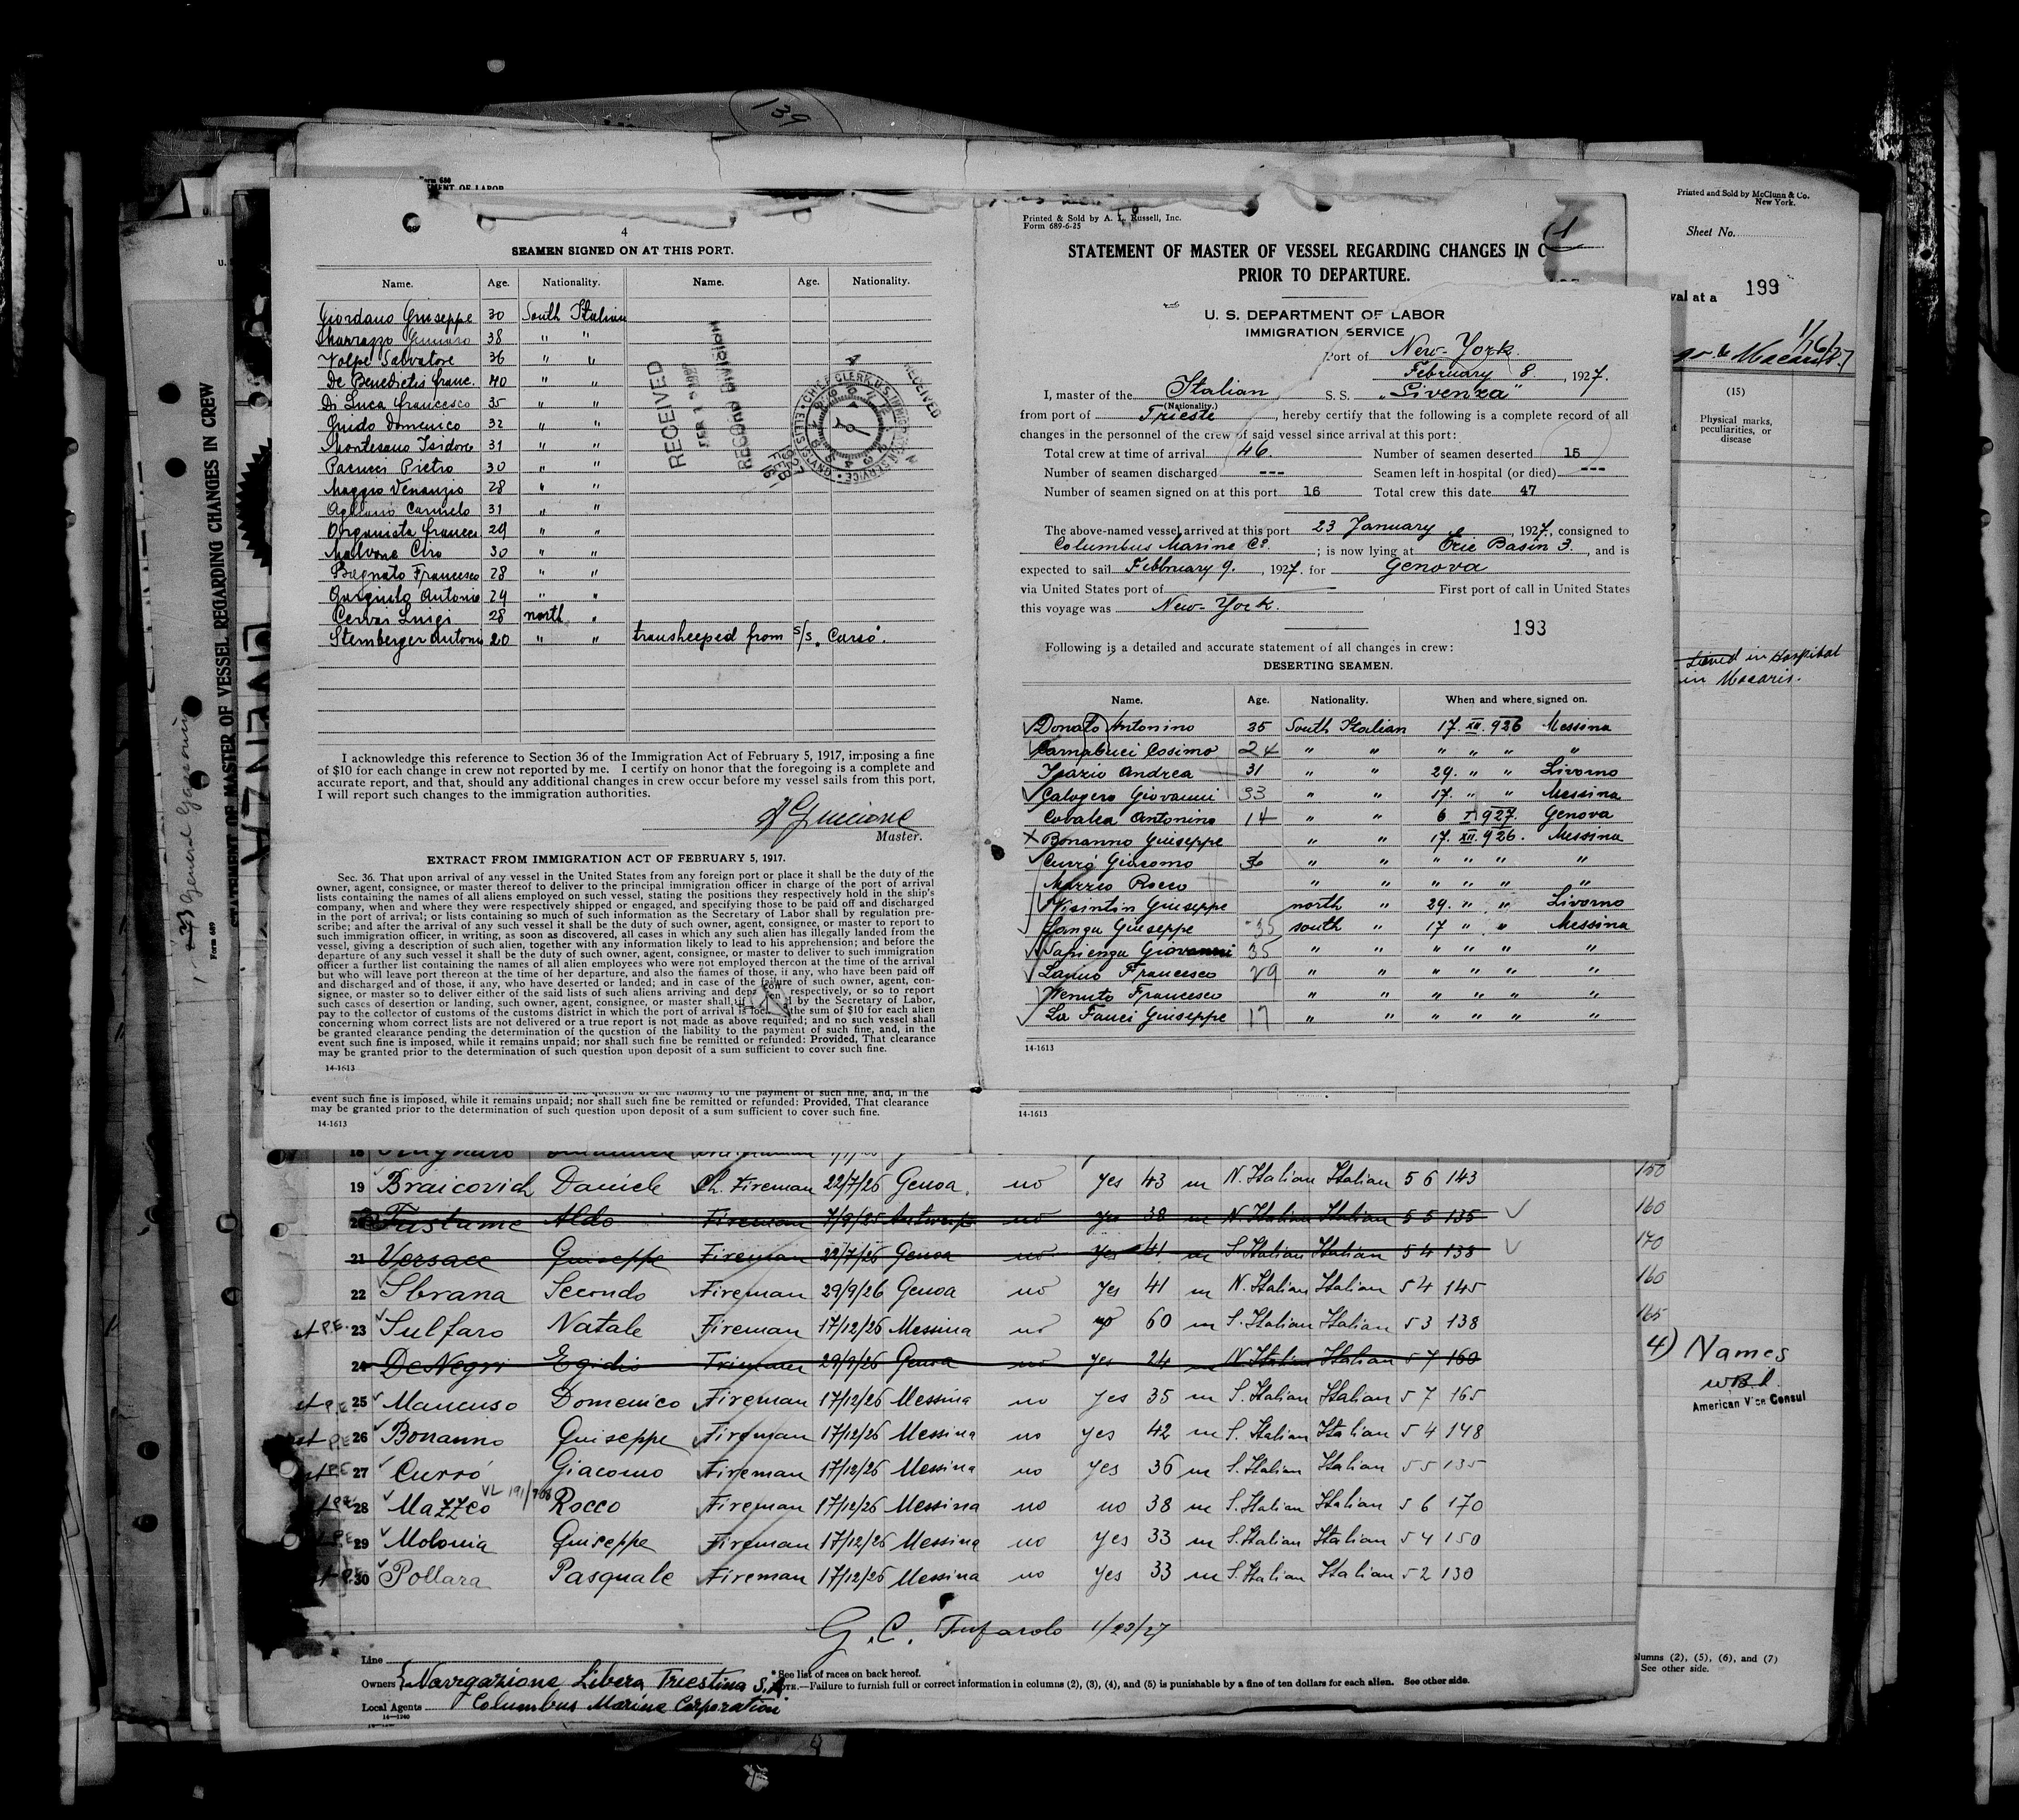 139
4
SEAMEN SIGNED ON AT THIS PORT.
Name. Age. Nationality. Name. Age. Nationality.
Giordano Giuseppe 30 South Italian
38 " "
Volpe Salvatore 36 " "
De Benedictis Franc. 40 " "
Di Luca Francesco 35 " "
Guido Domenico 32 " "
Montesano Isidoro 31 " "
Pietro 30 " "
Maggio Venanzio 28 " "
Carmelo 31 " "
29 " "
Malvone Ciro 30 " "
Bagnato Francesco 28 " "
Antonio 29 " "
Cervai Luigi 28 north "
Sternberger Antonio 20 " " transheeped from S/S. Carso.
RECEIVED
RECORD DIVISION
CHIEF CLERK, U.S. IMMIGRATION SERVICE
ELLIS ISLAND
RECEIVED
I acknowledge this reference to Section 36 of the Immigration Act of February 5, 1917, imposing a fine
of $10 for each change in crew not reported by me. I certify on honor that the foregoing is a complete and
accurate report, and that, should any additional changes in crew occur before my vessel sails from this port,
I will report such changes to the immigration authorities.
Master.
EXTRACT FROM IMMIGRATION ACT OF FEBRUARY 5, 1917.
Sec. 36. That upon arrival of any vessel in the United States from any foreign port or place it shall be the duty of the
owner, agent, consignee, or master thereof to deliver to the principal immigration officer in charge of the port of arrival
lists containing the names of all aliens employed on such vessel, stating the positions they respectively hold in the ship's
company, when and where they were respectively shipped or engaged, and specifying those to be paid off and discharged
in the port of arrival; or lists containing so much of such information as the Secretary of Labor shall by regulation pre-
scribe; and after the arrival of any such vessel it shall be the duty of such owner, agent, consignee, or master to report to
such immigration officer, in writing, as soon as discovered, all cases in which any such alien has illegally landed from the
vessel, giving a description of such alien, together with any information likely to lead to his apprehension; and before the
departure of any such vessel it shall be the duty of such owner, agent, consignee, or master to deliver to such immigration
officer a further list containing the names of all alien employees who were not employed thereon at the time of the arrival
but who will leave port thereon at the time of her departure, and also the names of those, if any, who have been paid off
and discharged and of those, if any, who have deserted or landed; and in case of the failure of such owner, agent, con-
signee, or master so to deliver either of the said lists of such aliens arriving and dep respectively, or so to report
such cases of desertion or landing, such owner, agent, consignee, or master shall, if d by the Secretary of Labor,
pay to the collector of customs of the customs district in which the port of arrival is the sum of $10 for each alien
concerning whom correct lists are not delivered or a true report is not made as above required; and no such vessel shall
be granted clearance pending the determination of the question of the liability to the payment of such fine, and, in the
event such fine is imposed, while it remains unpaid; nor shall such fine be remitted or refunded: Provided, That clearance
may be granted prior to the determination of such question upon deposit of a sum sufficient to cover such fine.
14-1613
event such fine is imposed, while it remains unpaid; nor shall such fine be remitted or refunded: Provided, That clearance
may be granted prior to the determination of such question upon deposit of a sum sufficient to cover such fine.
14-1613
Printed & Sold by A. L. Russell, Inc.
Form 689-6-25
STATEMENT OF MASTER OF VESSEL REGARDING CHANGES IN C
PRIOR TO DEPARTURE.
U. S. DEPARTMENT OF LABOR
IMMIGRATION SERVICE
Port of New-York.
February 8. , 1927.
I, master of the Italian S. S. "Livenza"
(Nationality.)
from port of Trieste , hereby certify that the following is a complete record of all
changes in the personnel of the crew of said vessel since arrival at this port:
Total crew at time of arrival 46. Number of seamen deserted 15
Number of seamen discharged --- Seamen left in hospital (or died) ---
Number of seamen signed on at this port 16 Total crew this date 47
The above-named vessel arrived at this port 23 January , 1927, consigned to
Columbus Marine Co. ; is now lying at Erie Basin 3. , and is
expected to sail February 9. , 1927. for Genova
via United States port of First port of call in United States
this voyage was New-York.
193
Following is a detailed and accurate statement of all changes in crew:
DESERTING SEAMEN.
Name. Age. Nationality. When and where signed on.
Donato Antonino 35 South Italian 17. XII. 926 Messina
Carnabuci Cosimo 24 " " " " " "
Andrea 31 " " 29. " " Livorno
Calogero Giovanni 33 " " 17. " " Messina
Antonino 14 " " 6 I 927. Genova
Bonanno Giuseppe " " 17. XII. 926. Messina
Curró Giacomo 36 " " " " " "
Rocco " " " " " "
Visintin Giuseppe north " 29. " " Livorno
Giuseppe 35 south " 17 " " Messina
Sapienza Giovanni 35 " " " " " "
Francesco 29 " " " " " "
Venuto Francesco " " " " " "
La Fauci Giuseppe 17 " " " " " "
14-1613
14-1613
Printed and Sold by McClunn & Co.
New York.
Sheet No.
val at a 199
(15)
Physical marks,
peculiarities, or
disease
in Hospital
in Macoris.
19 Braicovich Daniele Ch. Fireman 22/7/26 Genoa. no yes 43 m N. Italian Italian 5 6 143
20 Aldo Fireman Antwerp no yes 38 m N. Italian Italian 5 5 135
21 Versace Guiseppe Fireman 22/7/26 Genoa no yes 41 m S. Italian Italian 5 4 138
22 Sbrana Secondo Fireman 29/9/26 Genoa no yes 41 m N. Italian Italian 5 4 145
23 Sulfaro Natale Fireman 17/12/26 Messina no 60 m S. Italian Italian 5 3 138
24 DeNegri Egidio Trimmer 29/9/26 Genoa no yes 24 m N. Italian Italian 5 7 160
25 Mancuso Domenico Fireman 17/12/26 Messina no yes 35 m S. Italian Italian 5 7 165
26 Bonanno Guiseppe Fireman 17/12/26 Messina no yes 42 m S. Italian Italian 5 4 148
27 Curró Giacomo Fireman 17/12/26 Messina no yes 36 m S. Italian Italian 5 5 135
28 Mazzeo Rocco Fireman 17/12/26 Messina no no 38 m S. Italian Italian 5 6 170
29 Molonia Guiseppe Fireman 17/12/26 Messina no yes 33 m S. Italian Italian 5 4 150
30 Pollara Pasquale Fireman 17/12/26 Messina no yes 33 m S. Italian Italian 5 2 130
150
160
170
160
165
4) Names
American Vice Consul
G. C. Tufarolo 1/23/27
Line
Owners Navigazione Libera Triestina S.A.
Local Agents Columbus Marine Corporation
14-1240
* See list of races on back hereof.
NOTE.—Failure to furnish full or correct information in columns (2), (3), (4), and (5) is punishable by a fine of ten dollars for each alien. See other side.
olumns (2), (5), (6), and (7)
See other side.
STATEMENT OF MASTER OF VESSEL REGARDING CHANGES IN CREW
Form 689